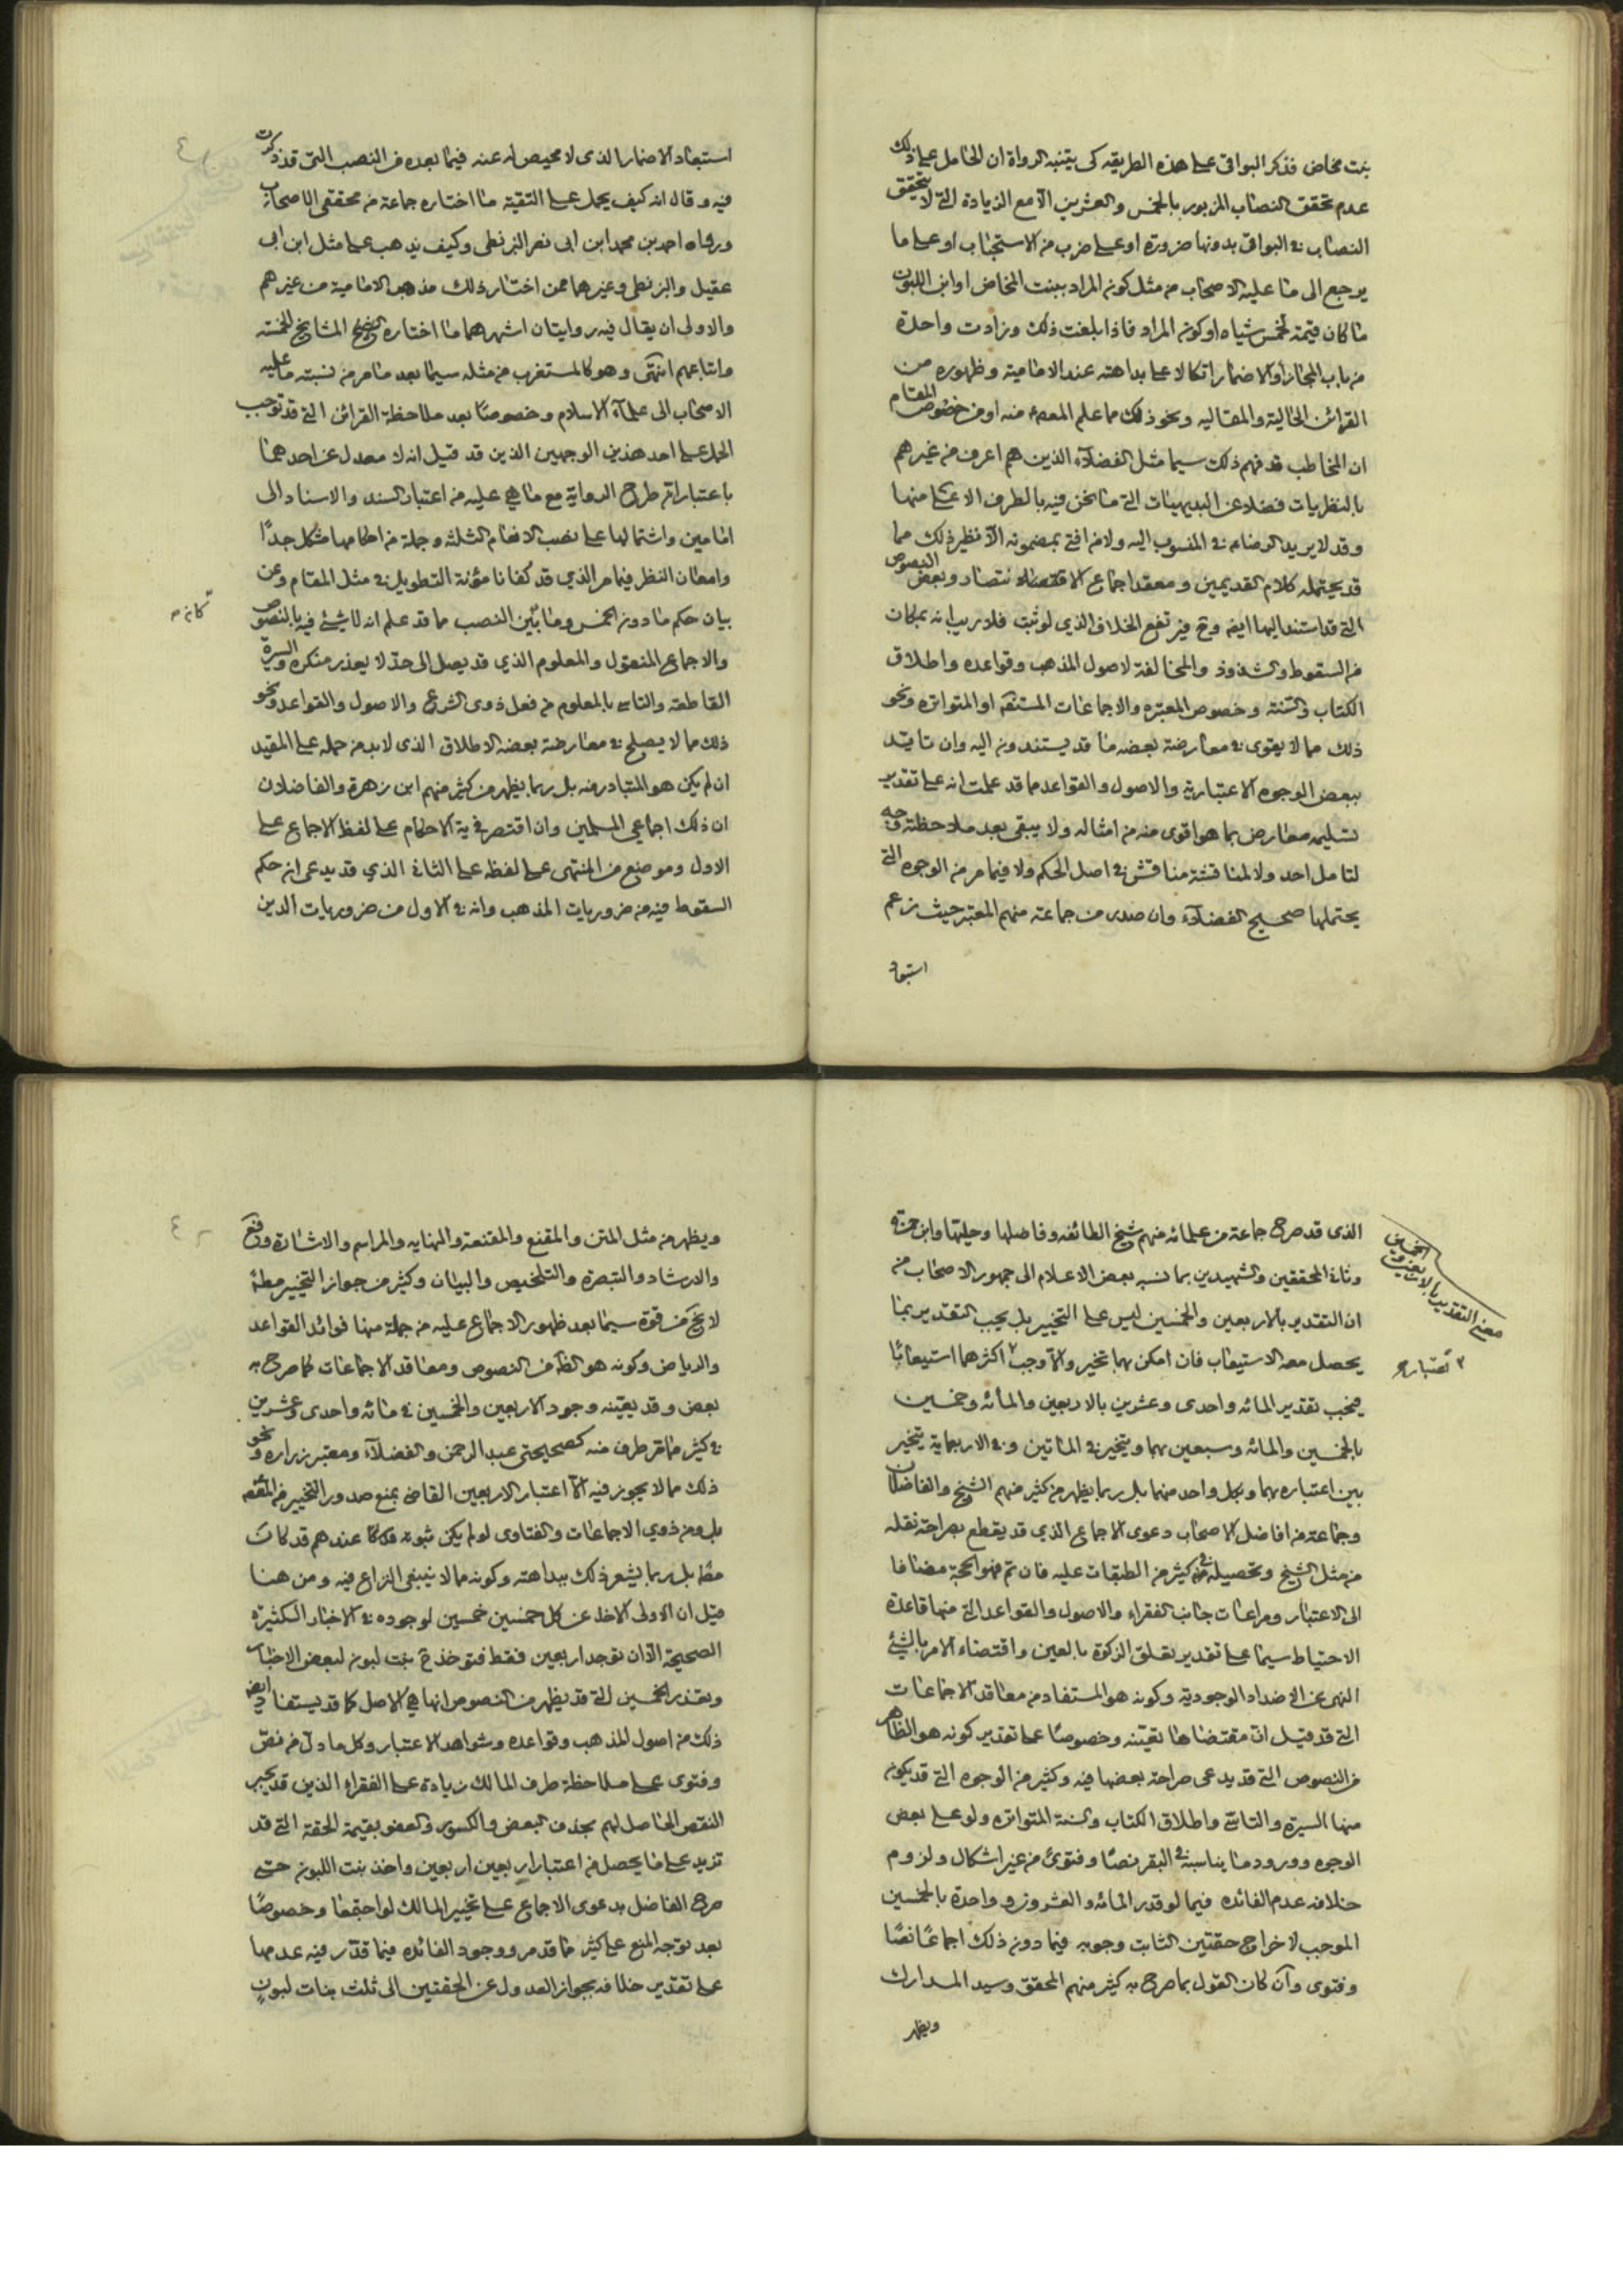 بنت مخاض فذكر البواقى على هذه الطريقه كى يتنبه الرواة ان الحامل على ذلك
عدم تحقق النصاب المزبور بالخمس والعشرين الا مع الزيادة التى لا يتحقق
النصاب فى البواقى بدونها ضرورة او على ضرب من الاستحباب او على ما
يرجع الى ما عليه الاصحاب من مثل كون المراد ببنت المخاض او ابن اللبون
ما كان قيمته لخمس شياه او كون المراد فاذا بلغت ذلك وزادت واحدة
من باب المجاز او الاضمار اتكالا على بداهته عند الامامية وظهوره من
القرائن الحالية والمقاليه ونحو ذلك مما علم المعصوم منه او من خصوص المقام
ان المخاطب قد فهم ذلك سيما مثل الفضلآء الذين هم اعرف من غيرهم
بالنظريات فضلا عن البديهيات التى ما نحن فيه بالطرف الاعلى منها
وقد لا يريد الرضا ع فى المنسوب اليه ولا من افتى بمضمونه الا نظير ذلك مما
قد يحتمله كلام القديمين ومعقد اجماع الانتصار وبعض النصوص
التى قد استند اليها ايضه وح فيرتفع الخلاف الذى لو ثبت فلا ريب انه بمكان
من السقوط والشذوذ والمخالفة لاصول المذهب وقواعده واطلاق
الكتاب والسنة وخصوص المعتبره والاجماعات المستفيضه او المتواتره ونحو
ذلك مما لا يقوى فى معارضة بعضه ما قد يستندون اليه وان تايد
ببعض الوجوه الاعتبارية والاصول والقواعد مما قد علمت انه على تقدير
تسليمه معارض بما هو اقوى منه من امثاله ولا يبقى بعد ملاحظته وجه
لتامل احد ولا لمناقشة مناقش فى اصل الحكم ولا فيما مر من الوجوه التى
يحتملها صحيح الفضلآء وان صدر من جماعة منهم المعتبر حيث زعم
استبعاد
استبعاد الاضمار الذى لا محيص له عنه فيما بعده من النصب التى قد ذكرت
فيه وقال انه كيف يحمل على التقية ما اختاره جماعة من محققى الاصحاب
ورواه احمد بن محمد ابن ابى نصر البزنطى وكيف يذهب على مثل ابن ابى
عقيل والبزنطى وغيرهما ممن اختار ذلك مذهب الامامية من غيرهم
والاولى ان يقال فيه روايتان اشهرهما ما اختاره المشايخ الخمسة
واتباعهم انتهى وهو كالمستغرب من مثله سيما بعد ما مر من نسبته ما عليه
الاصحاب الى علمآء الاسلام وخصوصا بعد ملاحظة القرائن التى قد توجب
الحمل على احد هذين الوجهين الذين قد قيل انه لا معدل عن احدهما
باعتبار ان طرح الرواية مع ما هى عليه من اعتبار السند والاسناد الى
امامين واشتمالها على نصب الانعام الثلثه وجملة من احكامها مشكل جدًا
وامعان النظر فيما مر الذى قد كفانا مؤنة التطويل فى مثل المقام وعن
بيان حكم ما دون الخمس وما بين النصب مما قد علم انه لا شيئ فيه بالنصوص
والاجماع المنقول والمعلوم الذي قد يصل الى حد لا يعذر منكره والسيرة
القاطعة والتاسى بالمعلوم من فعل ذوى الشرع والاصول والقواعد ونحو
ذلك مما لا يصلح فى معارضة بعضه الاطلاق الذى لا بد من حمله على المقيد
ان لم يكن هو المتبادر منه بل ربما يظهر من كثير منهم ابن زهرة والفاضلان
ان ذلك اجماعي المسلمين وان اقتصر فى ية الاحكام على لفظ الاجماع على
الاول وموضع من المنتهى على لفظه على الثانى الذي قد يدعى ان حكم
السقوط فيه من ضروريات المذهب وانه فى الاول من ضروريات الدين
الذى قد صرح جماعة من علمائه منهم شيخ الطائفه وفاضلها وحليتها وابن حمزه
وثانى المحققين والشهيدين بما نسبه بعض الاعلام الى جمهور الاصحاب من
ان التقدير بالاربعين والخمسين ليس على التخيير بل يجب التقدير بما
يحصل معه الاستيعاب فان امكن بهما تخير والا وجب اكثرهما استيعابًا
فيجب تقدير المائه واحدى وعشرين بالاربعين والمائه وخمسين
بالخمسين والمائه وسبعين بهما ويتخير فى الماتين وفى الاربعماية يتخير
بين اعتباره بهما وبكل واحد منهما بل ربما يظهر من كثير منهم الشيخ والفاضلان
وجماعة من افاضل الاصحاب دعوى الاجماع الذي قد يقطع بصراحة نقله
من مثل الشيخ وتحصيله فى كثير من الطبقات عليه فان تم فهو الحجة مضافا
الى الاعتبار ومراعات جانب الفقراء والاصول والقواعد التى منها قاعدة
الاحتياط سيما على تقدير تعلق الزكوة بالعين واقتضاء الامر بالشيئ
النهى عن الاضداد الوجودية وكونه هو المستفاد من معاقد الاجماعات
التى قد قيل ان مقتضاها تعينه وخصوصًا على تقدير كونه هو الظاهر
من النصوص التى قد يدعى صراحة بعضها فيه وكثير من الوجوه التى قد يكون
منها السيرة والتاسى واطلاق الكتاب والسنة المتواتره ولو على بعض
الوجوه وورود ما يناسبه فى البقر نصًا وفتوى من غير اشكال ولزوم
خلافه عدم الفائده فيما لو قدر المائه والعشرون وواحدة بالخمسين
الموجب لاخراج حقتين الثابت وجوبه فيما دون ذلك اجماعًا نصًا
وفتوى وان كان القول بما صرح به كثير منهم المحقق وسيد المدارك
ويظهر
معنى التقدير بالاربعين والخمسين
اعتباره
ويظهر من مثل المتن والمقنع والمقنعة والنهايه والمراسم والاشارة وفع
والارشاد والتبصرة والتلخيص والبيان وكثير من جواز التخيير مطلقا
لا يخ من قوة سيما بعد ظهور الاجماع عليه من جملة منها فوائد القواعد
والرياض وكونه هو الظاهر من النصوص ومعاقد الاجماعات كما صرح به
بعض وقد يعينه وجود الاربعين والخمسين فى مائه واحدى وعشرين
فى كثير مما مر طرف منه كصحيحتى عبد الرحمن والفضلآء ومعتبر زراره ونحو
ذلك مما لا يجوز فيه الا اعتبار الاربعين القاضى بمنع صدور التخيير من المعصوم
بل ومن ذوي الاجماعات والفتاوى لو لم يكن ثبوته عندهم قد كان
بل ربما يشعر ذلك ببداهته وكونه مما لا ينبغى النزاع فيه ومن هنا
قيل ان الاولى الاخذ عن كل خمسين خمسين لوجوده فى الاخبار الكثيرة
الصحيحة الا ان توجد اربعين فقط فتوخذ ح بنت لبون لبعض الاخبار
وبعذر الخمسين التى قد يظهر من النصوص انها هى الاصل كما قد يستفاد ايضه
ذلك من اصول المذهب وقواعده وشواهد الاعتبار وكل ما دل من نص
وفتوى على ملاحظة طرف المالك زيادة على الفقراء الذين قد يجبر
النقص الحاصل لهم بحذف البعض والكسور والعفو بقيمة الحقة التى قد
تزيد على ما يحصل من اعتبار اربعين اربعين واخذ بنت اللبون حتى
صرح الفاضل بدعوى الاجماع على تخيير المالك لو اجتمعا وخصوصًا
بعد توجه المنع على كثير مما قد مر ووجود الفائده فيما قدر فيه عدمها
على تقدير خلافه بجواز العدول عن الحقتين الى ثلث بنات لبون